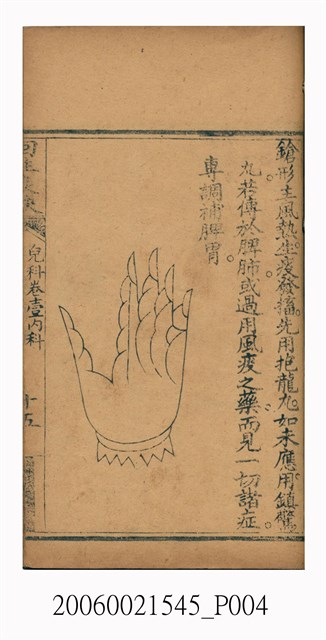 鎗形主風熱生痰發搐。先用抱龍丸。如未應。用鎮驚
丸。若傳於脾肺。或過用風痰之藥。而見一切諸症。
專調補脾胃。
兒科卷壹內科
十五
20060021545_P004